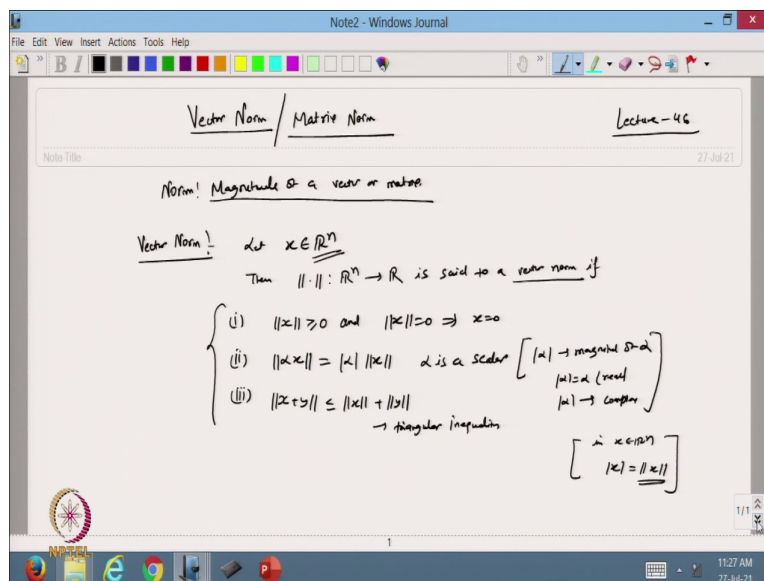 Note2 - Windows Journal
File Edit View Insert Actions Tools Help
Vector Norm / Matrix Norm
Lecture-46
Note Title
27-Jul-21
Norm! Magnitude of a vector or matrix
Vector Norm! Let x ∈ ℝⁿ
Then ||·||: ℝⁿ → ℝ is said to a vector norm if
(i) ||x|| ≥ 0 and ||x||=0 ⇒ x=0
(ii) ||αx|| = |α| ||x|| α is a scalar [|α| → magnitud of α
|α|=α (real
|α| → complex]
(iii) ||x+y|| ≤ ||x|| + ||y||
→ triangular inequality
[in x∈ℝⁿ
|x| = ||x||]
1/1
1
NPTEL
11:27 AM
27-Jul-21